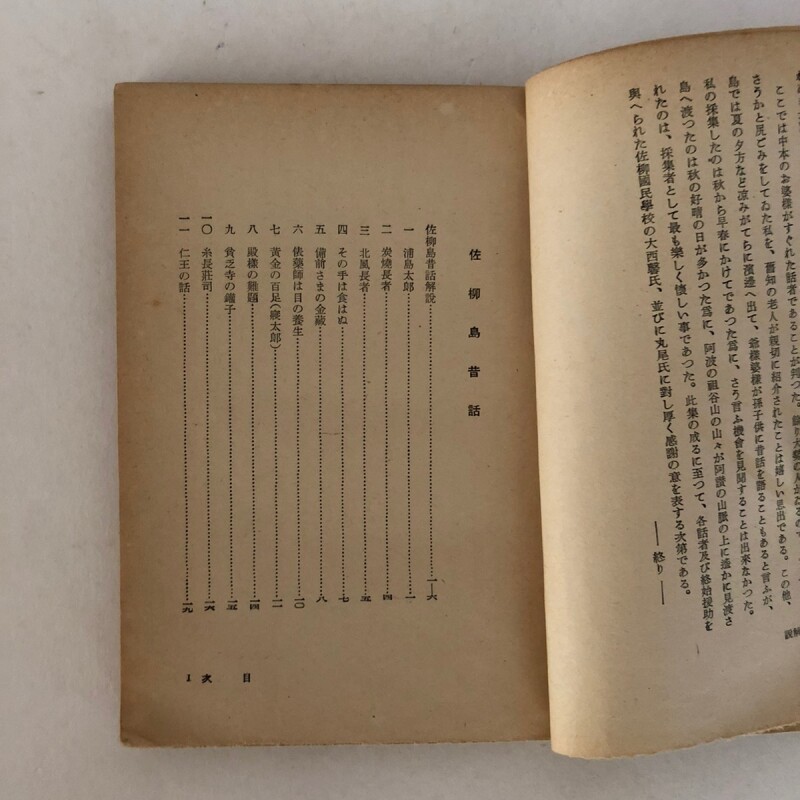 ここでは中本のお婆樣がすぐれた話者であることが判つた。
さうかと尻ごみをしてゐた私を、舊知の老人が親切に紹介されたことは嬉しい思出である。この他、
島では夏の夕方など凉みがてらに濱邊へ出て、爺樣婆樣が孫子供に昔話を語ることもあると言ふが、
私の採集したのは秋から早春にかけてであつた爲に、さう言ふ機會を見聞することは出來なかつた。
島へ渡つたのは秋の好晴の日が多かつた爲に、阿波の祖谷山の山々が阿讃の山脈の上に遙かに見渡さ
れたのは、採集者として最も樂しく懷しい事であつた。此集の成るに至つて、各話者及び終始援助を
與へられた佐柳國民學校の大西馨氏、並びに丸尾氏に對し厚く感謝の意を表する次第である。
――終り――
解說
佐柳島昔話
佐柳島昔話解說…………一―六
一 浦島太郎…………一
二 炭燒長者…………四
三 北風長者…………五
四 その手は食はぬ…………七
五 備前さまの金藏…………八
六 俵藥師は目の養生…………一〇
七 黃金の百足(寢太郎)…………一二
八 殿樣の難題…………一四
九 貧乏寺の鐘子…………一五
一〇 糸長莊司…………一六
一一 仁王の話…………一九
目次 1